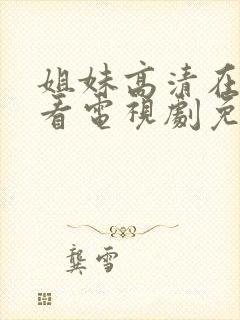 姐妹高清在
看電視劇免
龔雪